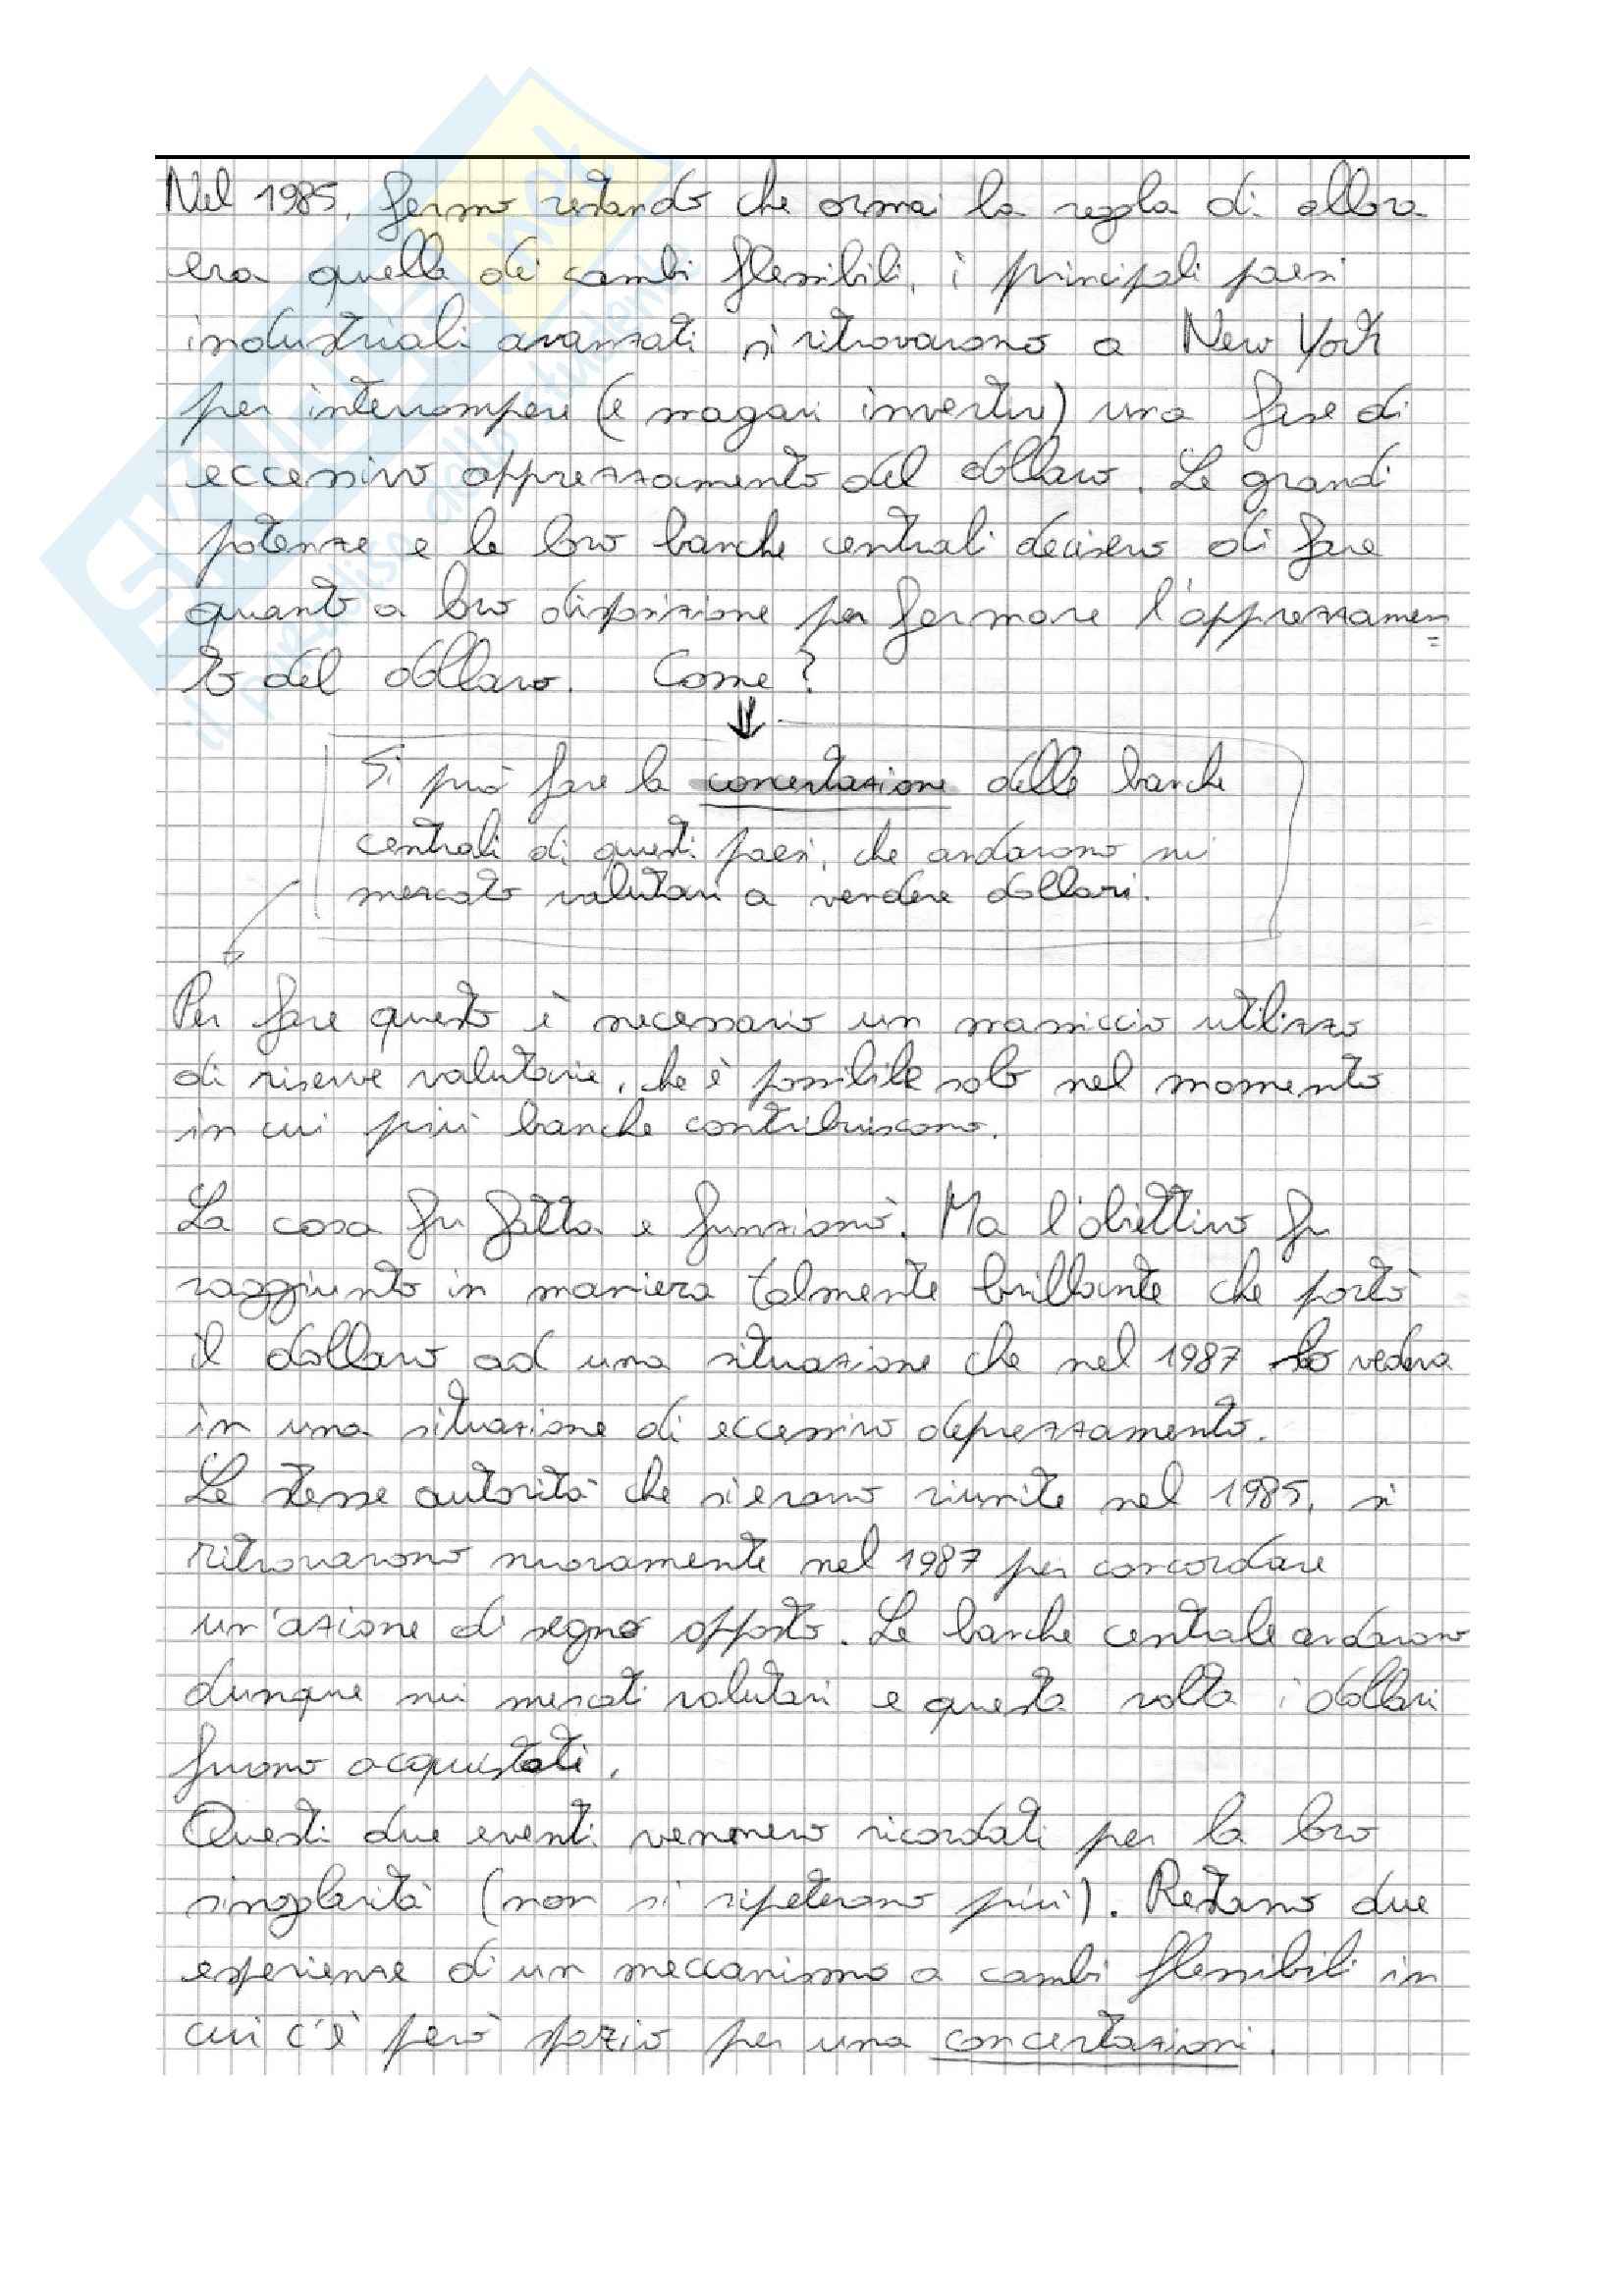 Nel 1985, fermo restando che ormai la regola di allora
era quella dei cambi flessibili, i principali paesi
industriali avanzati si ritrovarono a New York
per interrompere (e magari invertire) una fase di
eccessivo apprezzamento del dollaro. Le grandi
potenze e le loro banche centrali decisero di fare
quanto a loro disposizione per fermare l'apprezzamen=
to del dollaro. Come?
Si può fare la concertazione delle banche
centrali di questi paesi, che andarono sui
mercato valutari a vendere dollari.
Per fare questo è necessario un massiccio utilizzo
di riserve valutarie, che è possibile solo nel momento
in cui più banche contribuiscono.
La cosa fu fatta e funzionò. Ma l'obiettivo fu
raggiunto in maniera talmente brillante che portò
il dollaro ad una situazione che nel 1987 lo vedeva
in una situazione di eccessivo deprezzamento.
Le stesse autorità che si erano riunite nel 1985, si
ritrovarono nuovamente nel 1987 per concordare
un'azione di segno opposto. Le banche centrale andarono
dunque sui mercati valutari e questa volta i dollari
furono acquistati.
Questi due eventi vennero ricordati per la loro
singolarità (non si ripeterono più). Restano due
esperienze di un meccanismo a cambi flessibili in
cui c'è però spazio per una concertazioni.
SKUOLA.net
il paradiso dello studente